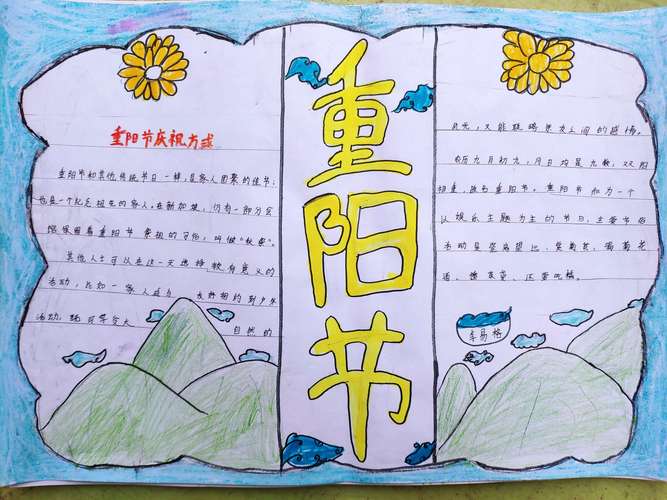 重阳节庆祝方式
重阳节和其他传统节日一样,是家人团聚的佳节;
也是一个纪念祖先的家人。在新加坡,仍有一部分家
保留着重阳节祭祖的习俗,叫做“秋祭”。
其他人士可以在这一天选择较有意义的
活动,比如一家人或与友好相约到户外
活动,既可享受大自然的
重阳节
月光,又能联络亲友之间的感情。
农历九月初九,月日均是九数,双阳
相重,故名重阳节。重阳节和为一个
以娱乐主题为主的节日,主要节俗
活动是登高望远、赏菊花、喝菊花
酒、插茱萸、还要吃糕。
李易格